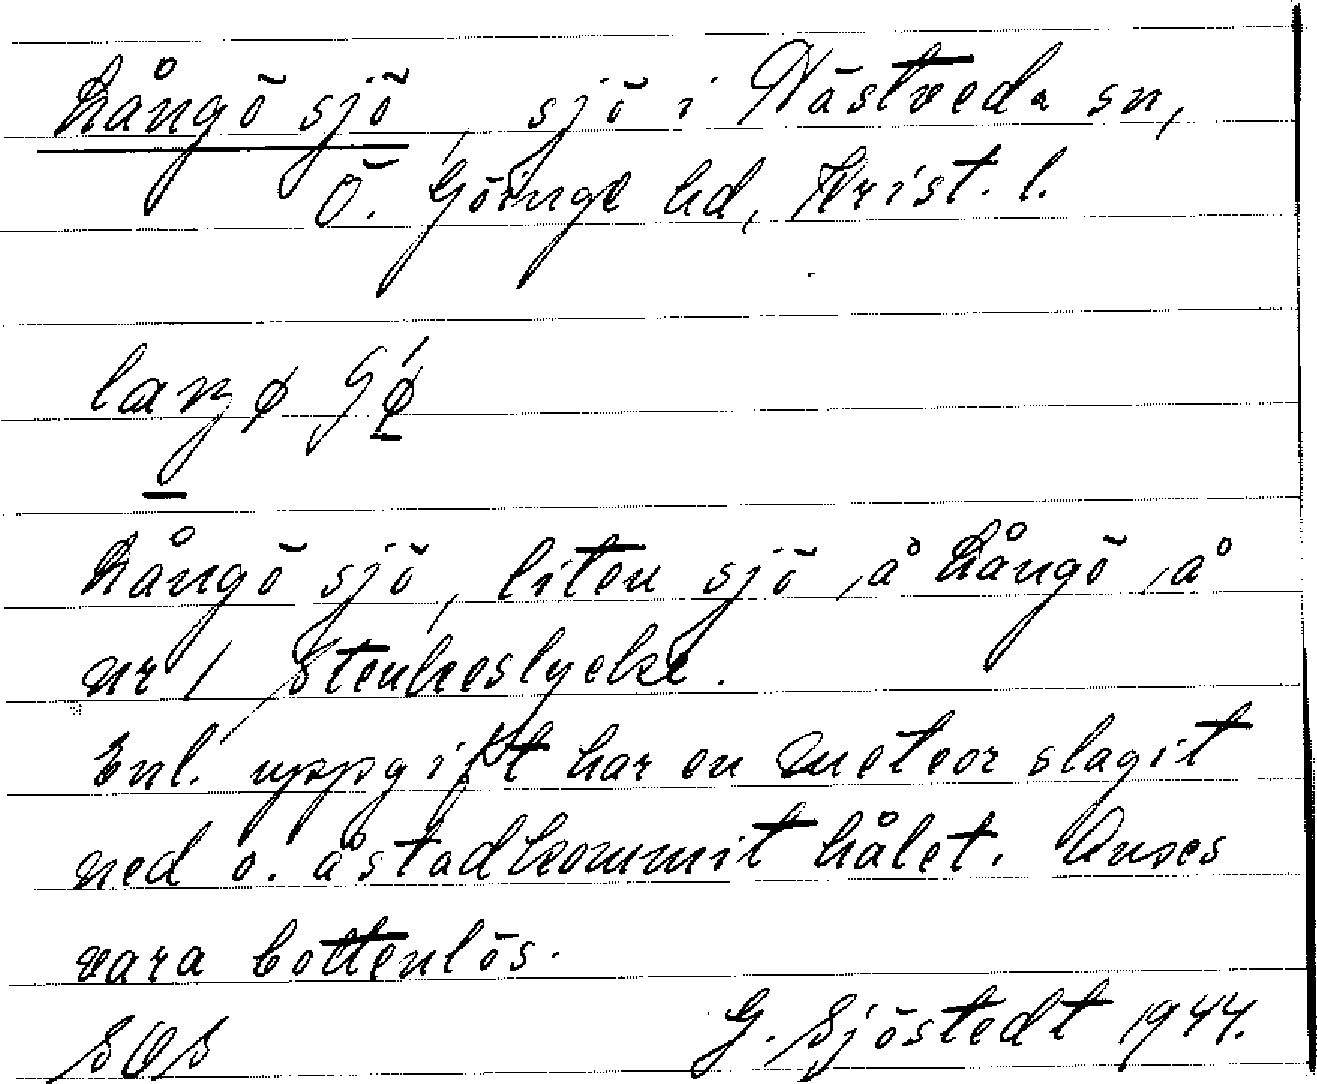 Långö sjö, sjö i Nästveda sn,
Ö. Göinge hd, Krist. l.
Långö sjö, liten sjö å Långö, å
nr 1 Stenkeslycke.
Enl. uppgift har en meteor slagit
ned o. åstadkommit hålet. Anses
vara bottenlös.
SOS G. Sjöstedt 1944.